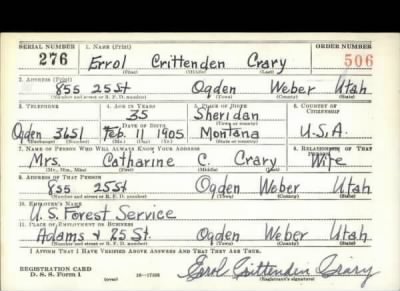 SERIAL NUMBER 1. NAME (Print) ORDER NUMBER
276 Errol Crittenden Crary 506
(First) (Middle) (Last)
2. ADDRESS (Print)
855 25 St Ogden Weber Utah
(Number and street or R. F. D. number) (Town) (County) (State)
3. TELEPHONE 4. AGE IN YEARS 5. PLACE OF BIRTH 6. COUNTRY OF CITIZENSHIP
35 Sheridan
DATE OF BIRTH (Town or county)
Ogden 3651 Feb. 11 1905 Montana U.S.A.
(Exchange) (Number) (Mo.) (Day) (Yr.) (State or country)
7. NAME OF PERSON WHO WILL ALWAYS KNOW YOUR ADDRESS 8. RELATIONSHIP OF THAT PERSON
Mrs. Catharine C. Crary Wife
(Mr., Mrs., Miss) (First) (Middle) (Last)
9. ADDRESS OF THAT PERSON
855 25 St Ogden Weber Utah
(Number and street or R. F. D. number) (Town) (County) (State)
10. EMPLOYER'S NAME
U.S. Forest Service
11. PLACE OF EMPLOYMENT OR BUSINESS
Adams & 25 St. Ogden Weber Utah
(Number and street or R. F. D. number) (Town) (County) (State)
I AFFIRM THAT I HAVE VERIFIED ABOVE ANSWERS AND THAT THEY ARE TRUE.
REGISTRATION CARD
D. S. S. Form 1 (over) Errol Crittenden Crary
(Registrant's signature)